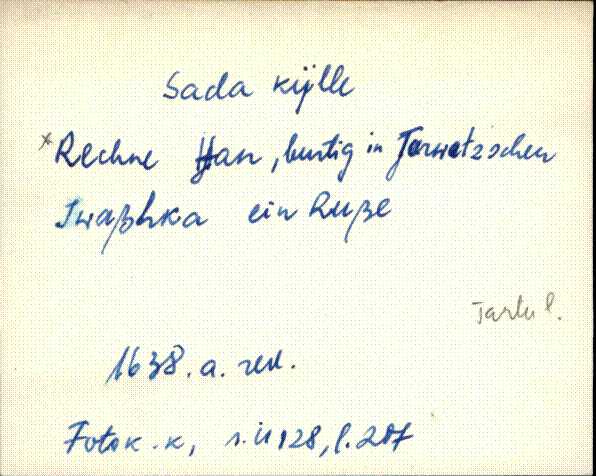 Sada külle
× Rechne Han, burtig in Tarwetzschen
Iwaßhka ein Ruße
Tartu l.
1638. a. rev.
Fotok. k, s. Ü 128, l. 207